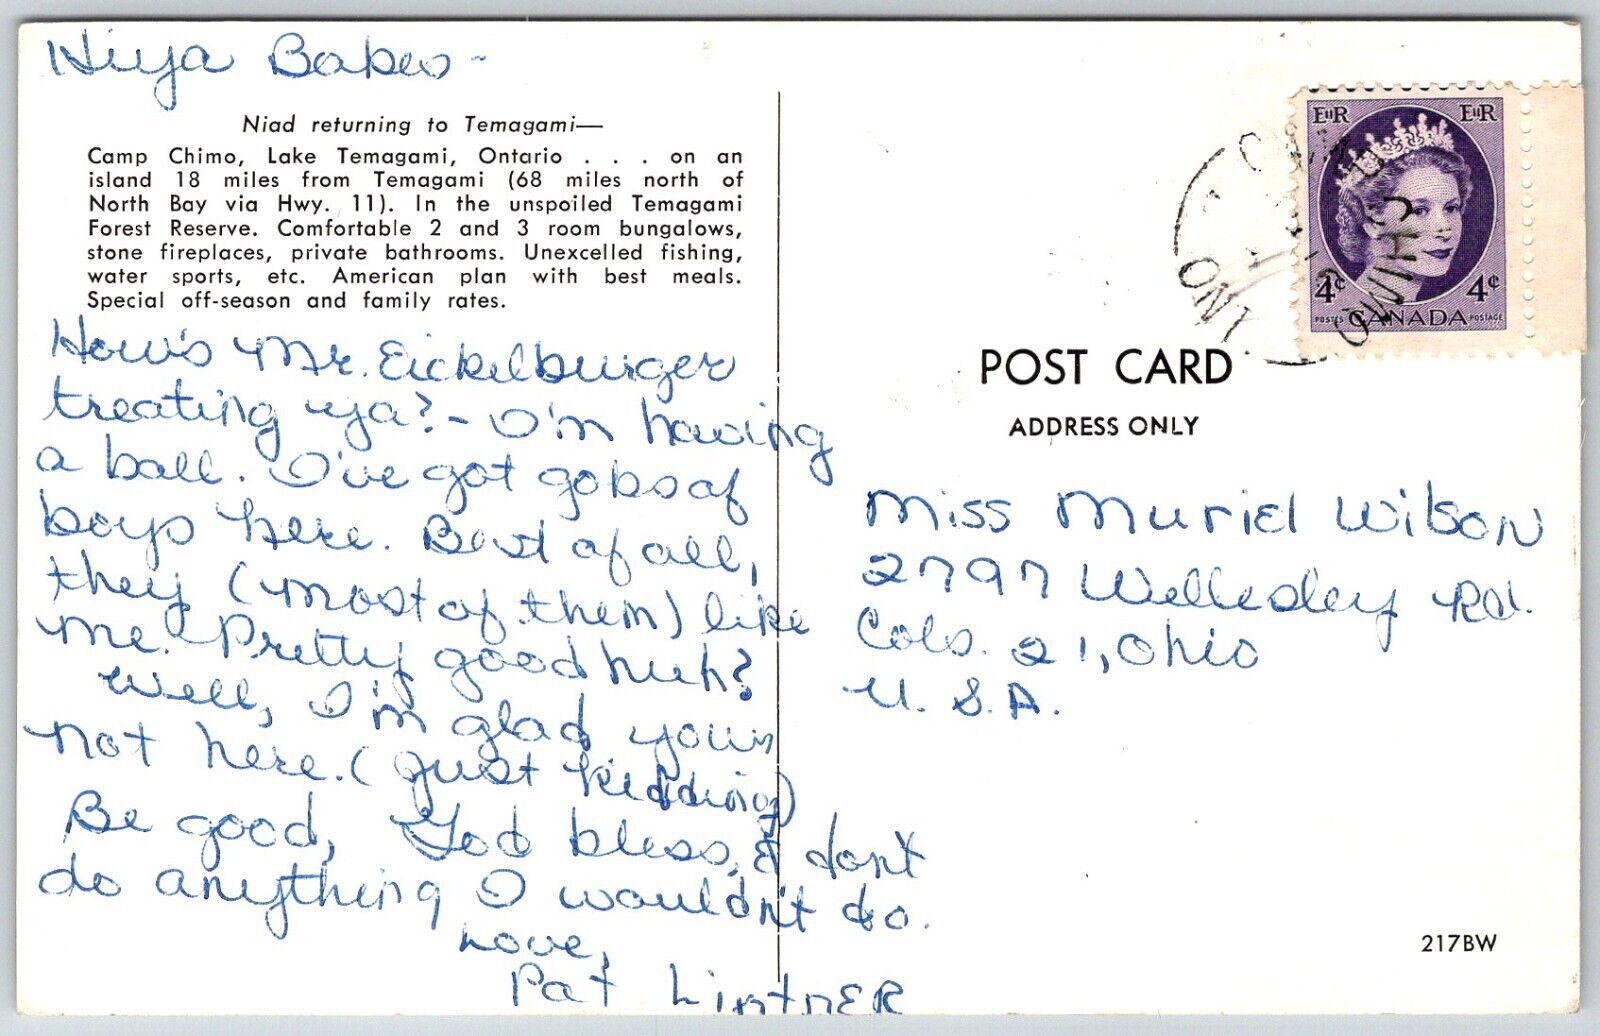 Hiya Babes -
Niad returning to Temagami—
Camp Chimo, Lake Temagami, Ontario . . . on an
island 18 miles from Temagami (68 miles north of
North Bay via Hwy. 11). In the unspoiled Temagami
Forest Reserve. Comfortable 2 and 3 room bungalows,
stone fireplaces, private bathrooms. Unexcelled fishing,
water sports, etc. American plan with best meals.
Special off-season and family rates.
How's Mr. Eickelburger
treating ya? - I'm having
a ball. I've got gobs of
boys here. Best of all,
they (most of them) like
me. Pretty good huh?
Well, I'm glad your
not here. (just kidding)
Be good, God bless, & don't
do anything I wouldn't do.
Love,
Pat Lintner
EIIR EIIR
4¢ 4¢
POSTES CANADA POSTAGE
ONT
POST CARD
ADDRESS ONLY
Miss Muriel Wilson
2797 Wellesley Rd.
Cols. 21, Ohio
U.S.A.
217BW